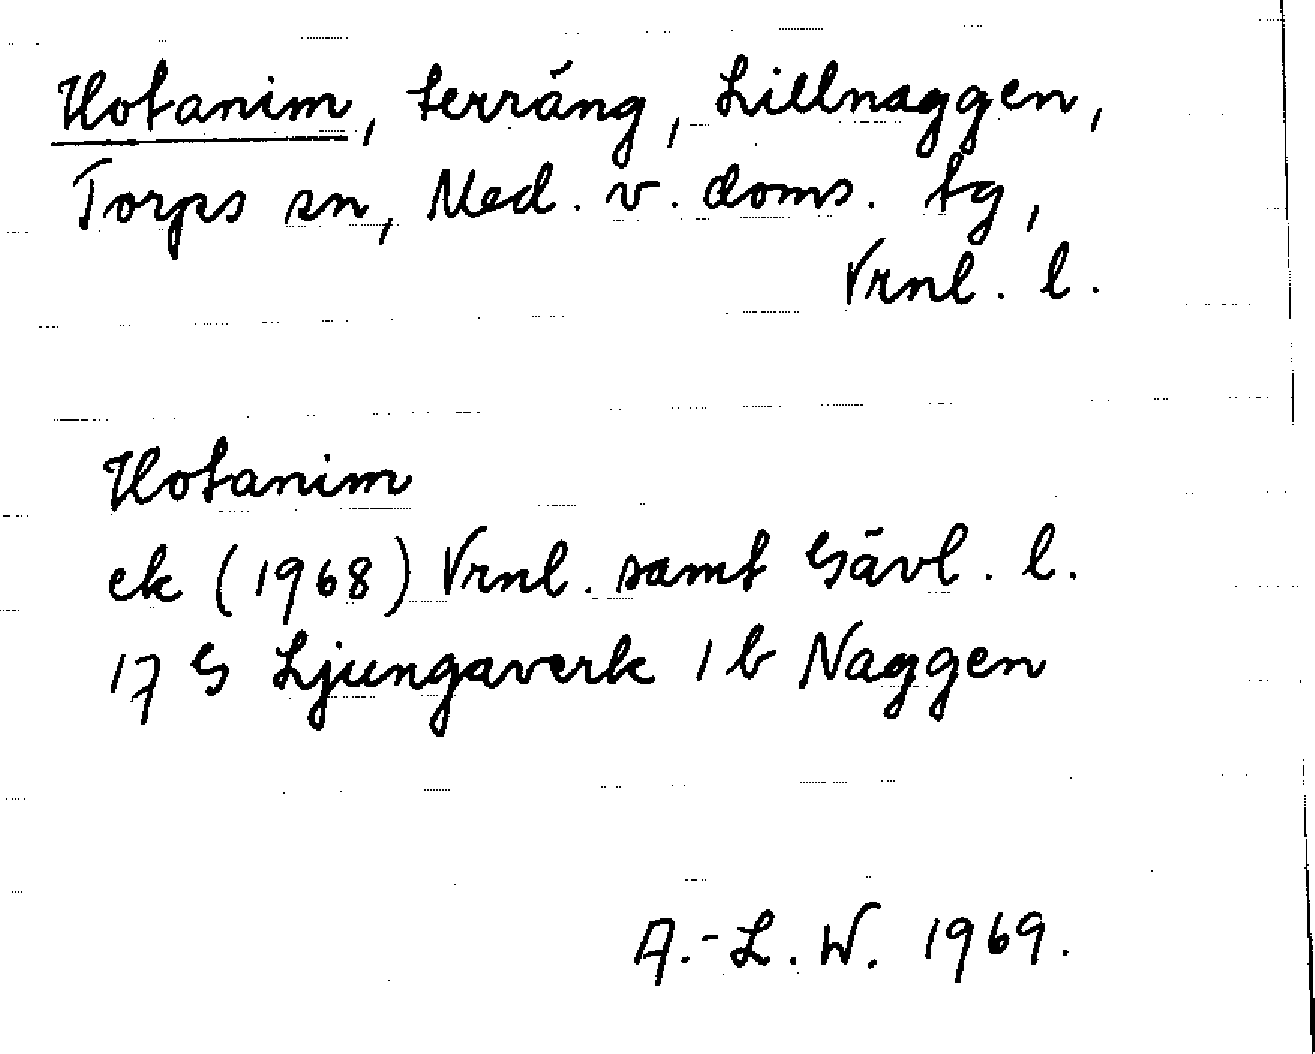 Hotanim, terräng, Lillnaggen,
Torps sn, Med. v. doms. tg,
Vrnl. l.
Hotanim
ek (1968) Vrnl. samt Gävl. l.
17 G Ljungaverk 1 b Naggen
A.-L. W. 1969.